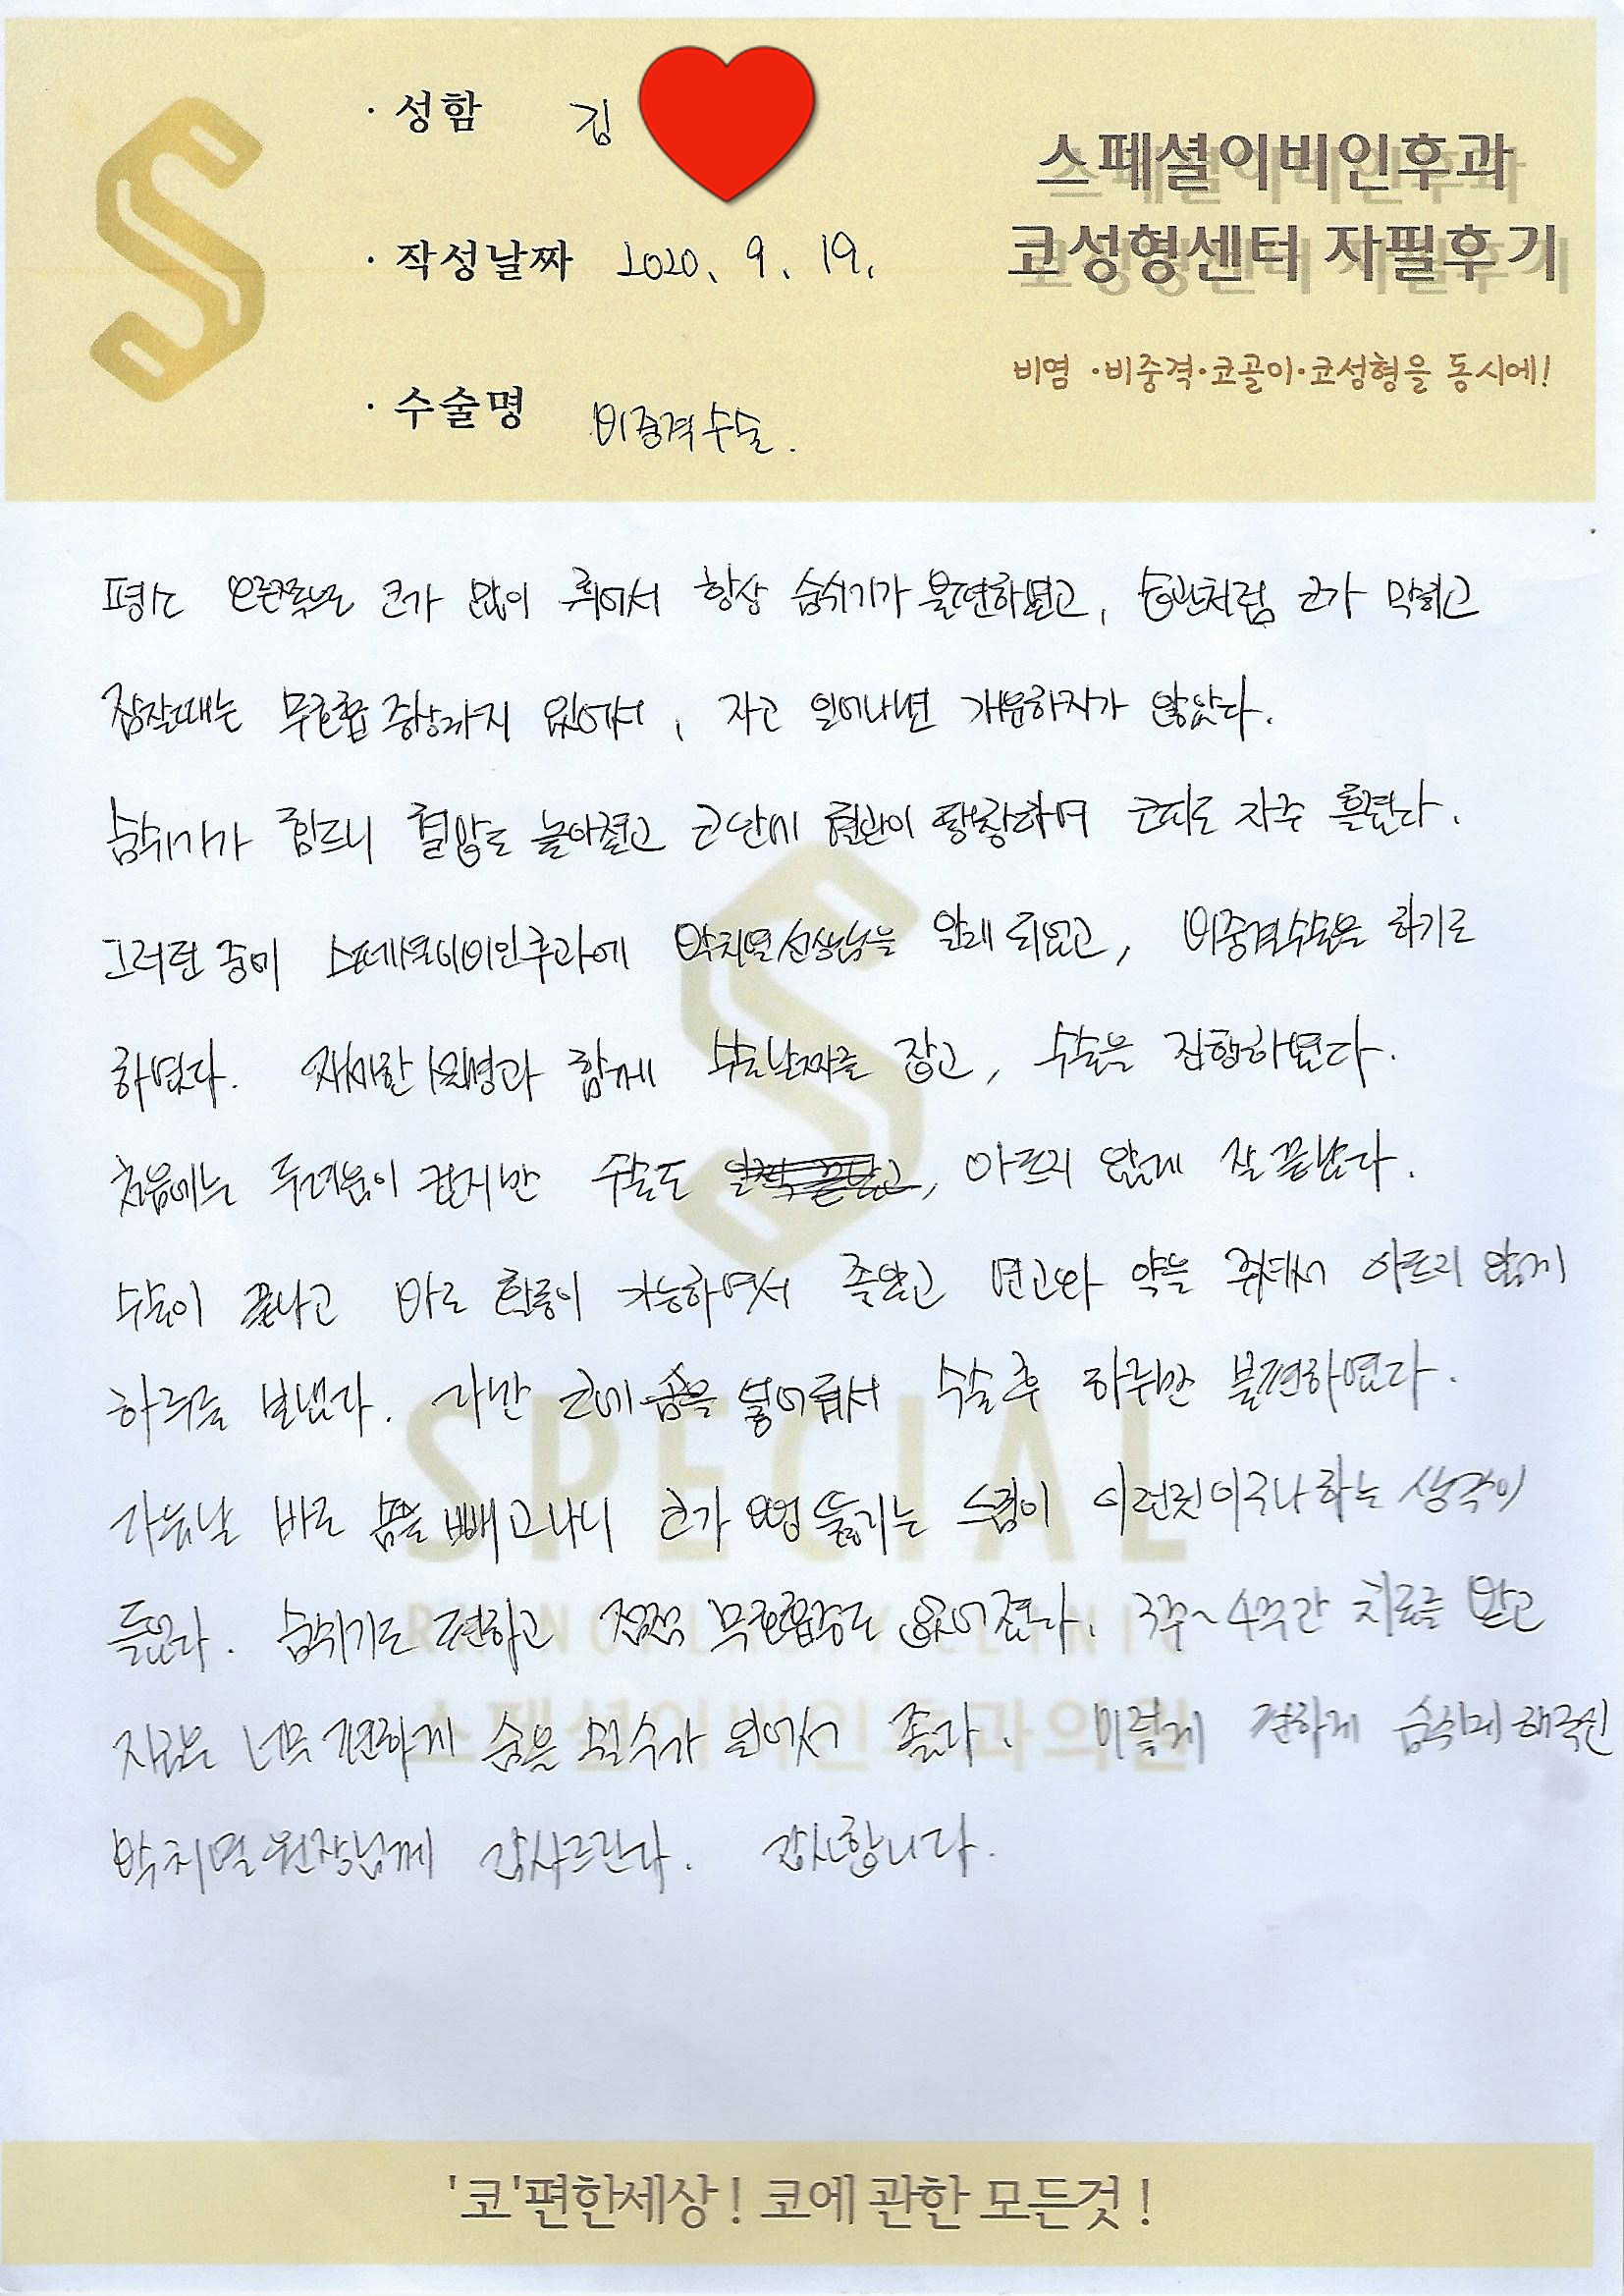 · 성함 김
스페셜이비인후과
코성형센터 자필후기
· 작성날짜 2020. 9. 19.
비염 ·비중격·코골이·코성형을 동시에!
· 수술명 비중격수술.
평소 오른쪽 코가 많이 휘어서 항상 숨쉬기가 불편하였고, 습관처럼 코가 막히고
잠잘때는 무호흡 증상까지 있어서, 자고 일어나면 개운하지가 않았다.
숨쉬기가 힘드니 혈압도 높아졌고 코안에 혈관이 팽창하여 코피도 자주 흘렸다.
그러던 중에 스페셜이비인후과에 박치열선생님을 알게 되었고, 비중격수술을 하기로
하였다. 자세한 설명과 함께 수술날짜를 잡고, 수술을 진행하였다.
처음에는 두려움이 컸지만 수술도 , 아프지 않게 잘 끝났다.
수술이 끝나고 바로 활동이 가능하여서 좋았고 연고와 약을 주셔서 아프지 않게
하루를 보냈다. 다만 코에 솜을 넣어둬서 수술후 하루만 불편하였다.
다음날 바로 솜을 빼고나니 코가 뻥 뚫리는 느낌이 이런것이구나 하는 생각이
들었다. 숨쉬기도 편하고 점점 무호흡증도 없어졌다. 3주~4주간 치료를 받고
지금은 너무 편하게 숨을 쉴수가 있어서 좋다. 이렇게 편하게 숨쉬게 해주신
박치열원장님께 감사드린다. 감사합니다.
SPECIAL
스페셜이비인후과의원
'코'편한세상! 코에 관한 모든것!